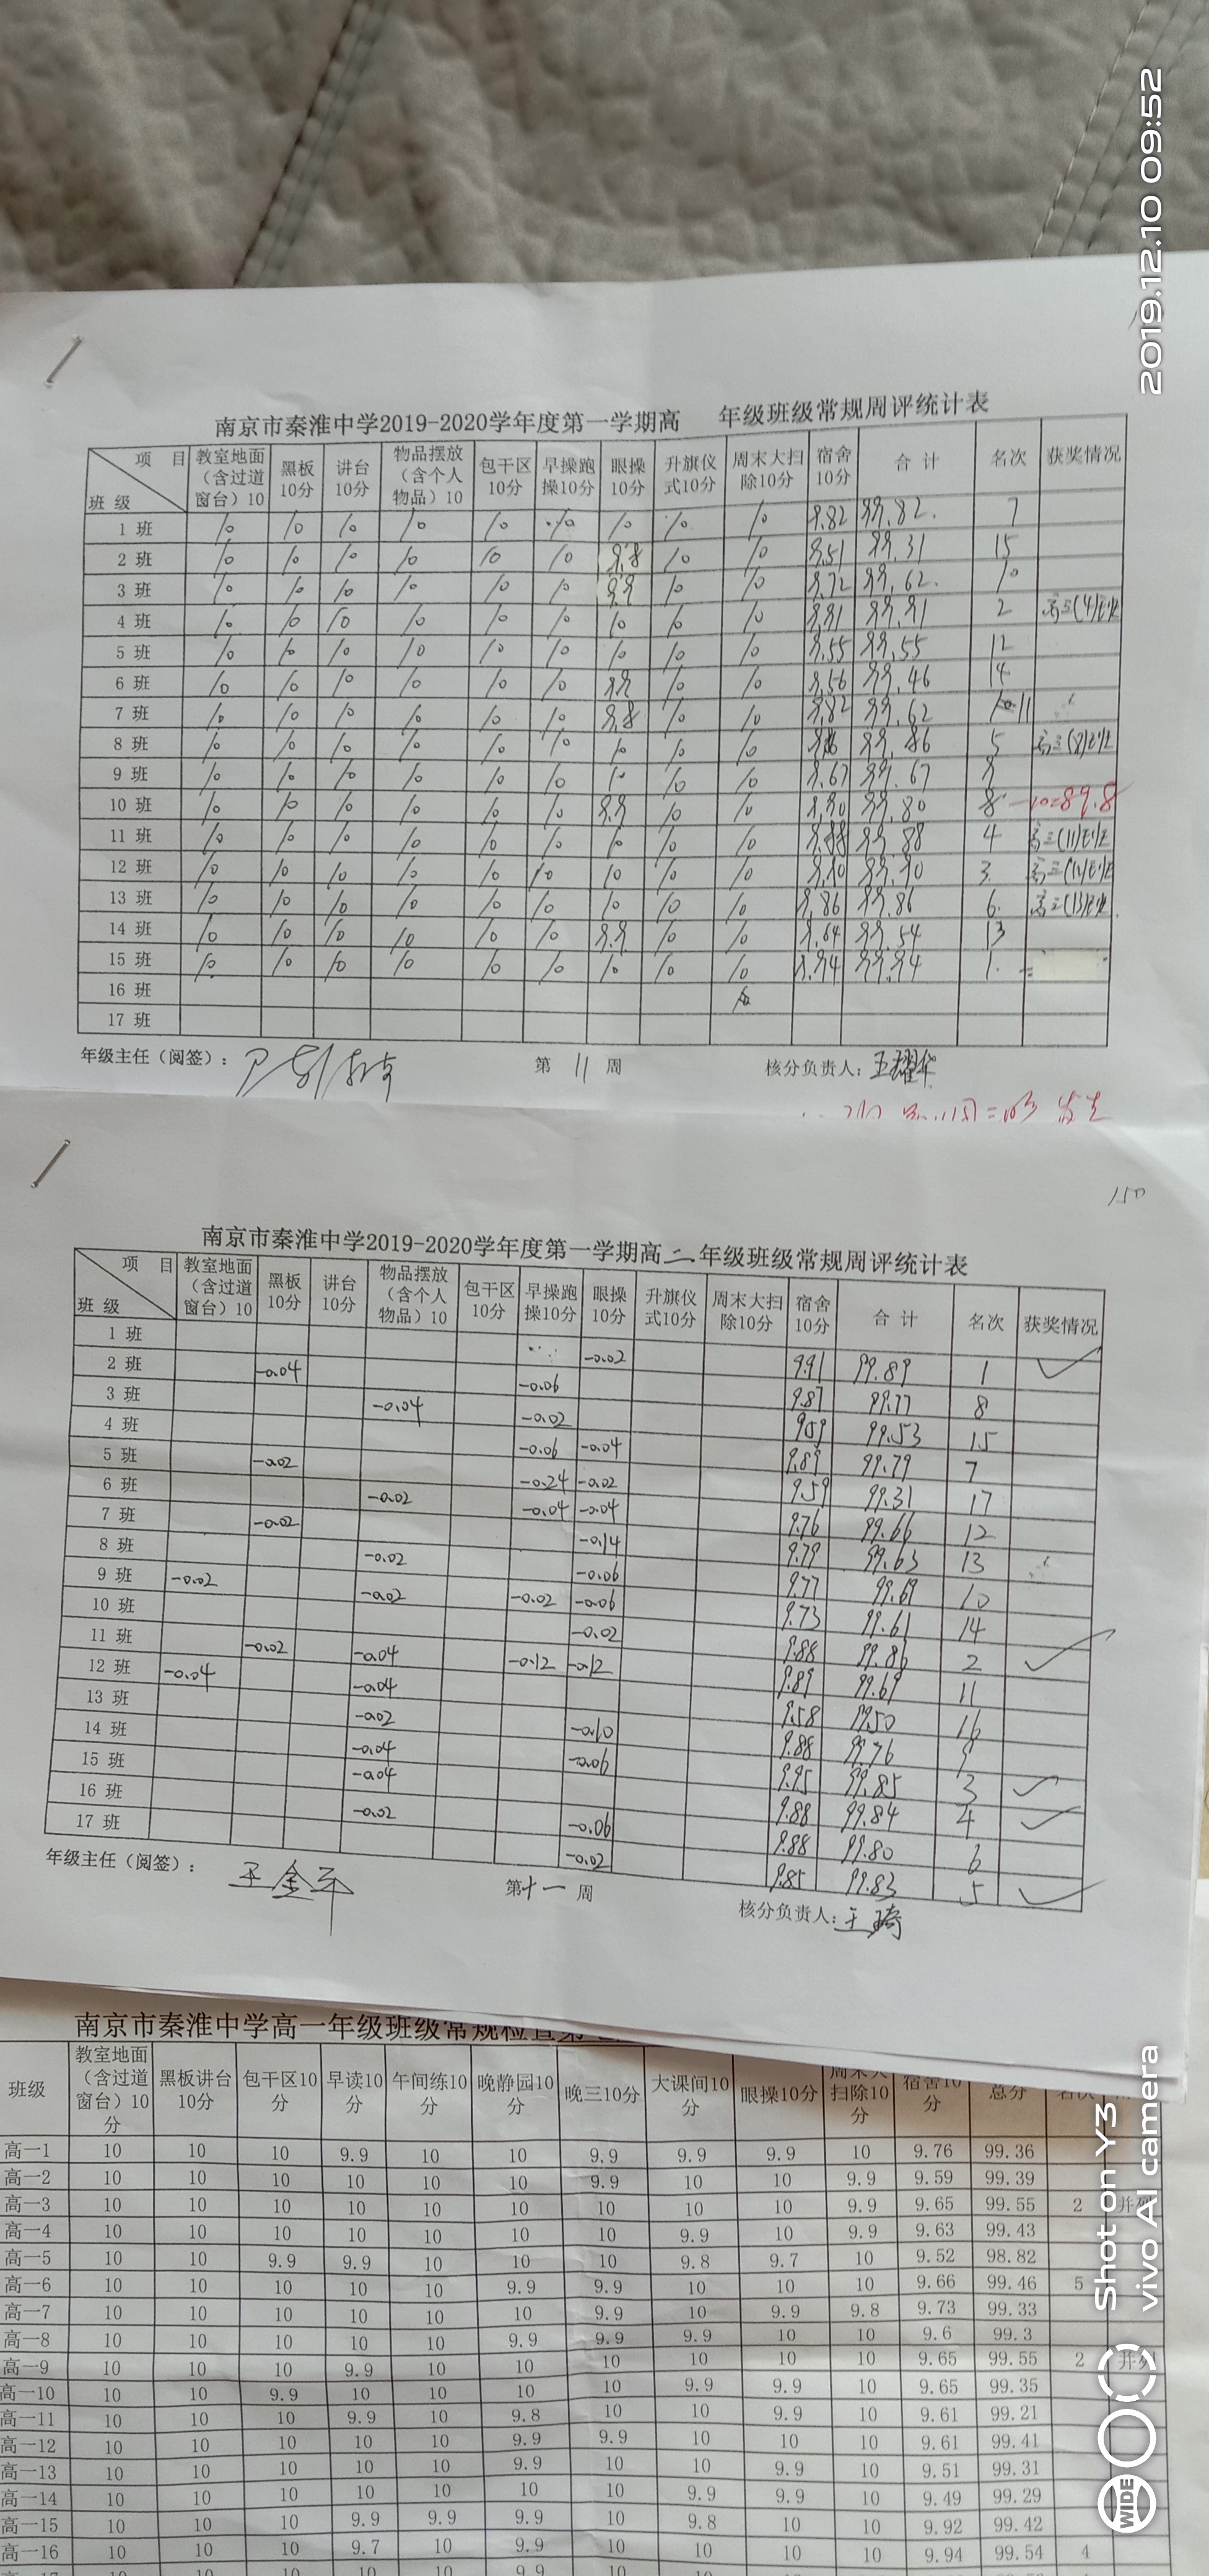 2019.12.10 09:52
南京市秦淮中学2019-2020学年度第一学期高 年级班级常规周评统计表
项 目 班 级 教室地面（含过道窗台）10 黑板10分 讲台10分 物品摆放（含个人物品）10 包干区10分 早操跑操10分 眼操10分 升旗仪式10分 周末大扫除10分 宿舍10分 合 计 名次 获奖情况
1 班 10 10 10 10 10 10 10 10 10 9.82 99.82. 7
2 班 10 10 10 10 10 10 9.8 10 10 9.51 99.31 15
3 班 10 10 10 10 10 10 9.9 10 10 9.72 99.62. 10
4 班 10 10 10 10 10 10 10 10 10 9.91 99.91 2 高三(4)
5 班 10 10 10 10 10 10 10 10 10 9.55 99.55 12
6 班 10 10 10 10 10 10 9.9 10 10 9.56 99.46 14
7 班 10 10 10 10 10 10 9.8 10 10 9.82 99.62 11
8 班 10 10 10 10 10 10 10 10 10 99.86 5 高三(8)
9 班 10 10 10 10 10 10 10 10 10 9.67 99.67 9
10 班 10 10 10 10 10 10 9.9 10 10 9.90 99.80 8
11 班 10 10 10 10 10 10 10 10 10 9.88 99.88 4 高三(11)
12 班 10 10 10 10 10 10 10 10 10 9.90 99.90 3. 高三(12)
13 班 10 10 10 10 10 10 10 10 10 9.86 99.86 6. 高三(13)
14 班 10 10 10 10 10 10 9.9 10 10 9.64 99.54 13
15 班 10 10 10 10 10 10 10 10 10 9.94 99.94 1.
16 班
17 班
年级主任（阅签）： 第 11 周 核分负责人：王耀华
150
南京市秦淮中学2019-2020学年度第一学期高二年级班级常规周评统计表
项 目 班 级 教室地面（含过道窗台）10 黑板10分 讲台10分 物品摆放（含个人物品）10 包干区10分 早操跑操10分 眼操10分 升旗仪式10分 周末大扫除10分 宿舍10分 合 计 名次 获奖情况
1 班 -0.02 9.91 99.89 1 ✓
2 班 -0.04 -0.06 9.87 99.77 8
3 班 -0.04 -0.02 9.59 99.53 15
4 班 -0.06 -0.04 9.89 99.79 7
5 班 -0.02 -0.24 -0.02 9.59 99.31 17
6 班 -0.02 -0.04 -0.04 9.76 99.66 12
7 班 -0.02 -0.14 9.79 99.63 13
8 班 -0.02 -0.06 9.77 99.69 10
9 班 -0.02 -0.02 -0.02 -0.06 9.73 99.61 14
10 班 -0.02 9.88 99.86 2 ✓
11 班 -0.02 -0.04 -0.12 -0.12 9.89 99.69 11
12 班 -0.04 -0.04 9.58 99.50 16
13 班 -0.02 -0.10 9.88 99.76 9
14 班 -0.04 -0.06 9.95 99.85 3 ✓
15 班 -0.04 9.88 99.84 4 ✓
16 班 -0.02 -0.06 9.88 99.80 6
17 班 -0.02 9.85 99.83 5 ✓
年级主任（阅签）： 王金平 第十一周 核分负责人：王琦
南京市秦淮中学高一年级班级常规检查第
班级 教室地面（含过道窗台）10分 黑板讲台10分 包干区10分 早读10分 午间练10分 晚静园10分 晚三10分 大课间10分 眼操10分 周末大扫除10分 宿舍10分 总分 名次
高一1 10 10 10 9.9 10 10 9.9 9.9 9.9 10 9.76 99.36
高一2 10 10 10 10 10 10 9.9 10 10 9.9 9.59 99.39
高一3 10 10 10 10 10 10 10 10 10 9.9 9.65 99.55 2 并列
高一4 10 10 10 10 10 10 10 9.9 10 9.9 9.63 99.43
高一5 10 10 9.9 9.9 10 10 10 9.8 9.7 10 9.52 98.82
高一6 10 10 10 10 10 9.9 9.9 10 10 10 9.66 99.46 5
高一7 10 10 10 10 10 10 9.9 10 9.9 9.8 9.73 99.33
高一8 10 10 10 10 10 9.9 9.9 9.9 10 10 9.6 99.3
高一9 10 10 10 9.9 10 10 10 10 10 10 9.65 99.55 2 并列
高一10 10 10 9.9 10 10 10 10 9.9 9.9 10 9.65 99.35
高一11 10 10 10 9.9 10 9.8 10 10 9.9 10 9.61 99.21
高一12 10 10 10 10 10 9.9 9.9 10 10 10 9.61 99.41
高一13 10 10 10 10 10 9.9 10 10 9.9 10 9.51 99.31
高一14 10 10 10 10 10 10 10 9.9 9.9 10 9.49 99.29
高一15 10 10 10 9.9 9.9 9.9 10 9.8 10 10 9.92 99.42
高一16 10 10 10 9.7 10 9.9 10 10 10 10 9.94 99.54 4
Shot on Y3
vivo AI camera
WIDE